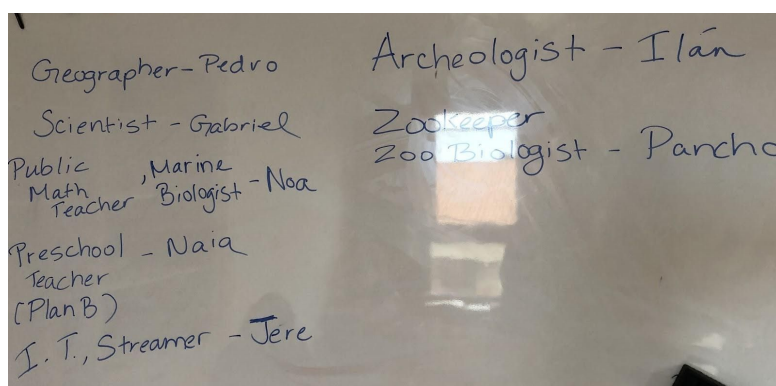 Geographer - Pedro
Scientist - Gabriel
Public
Math
Teacher
, Marine
Biologist - Noa
Preschool - Naia
Teacher
(Plan B)
I. T., Streamer - Jere
Archeologist - Ilán
Zookeeper
Zoo Biologist - Pancho